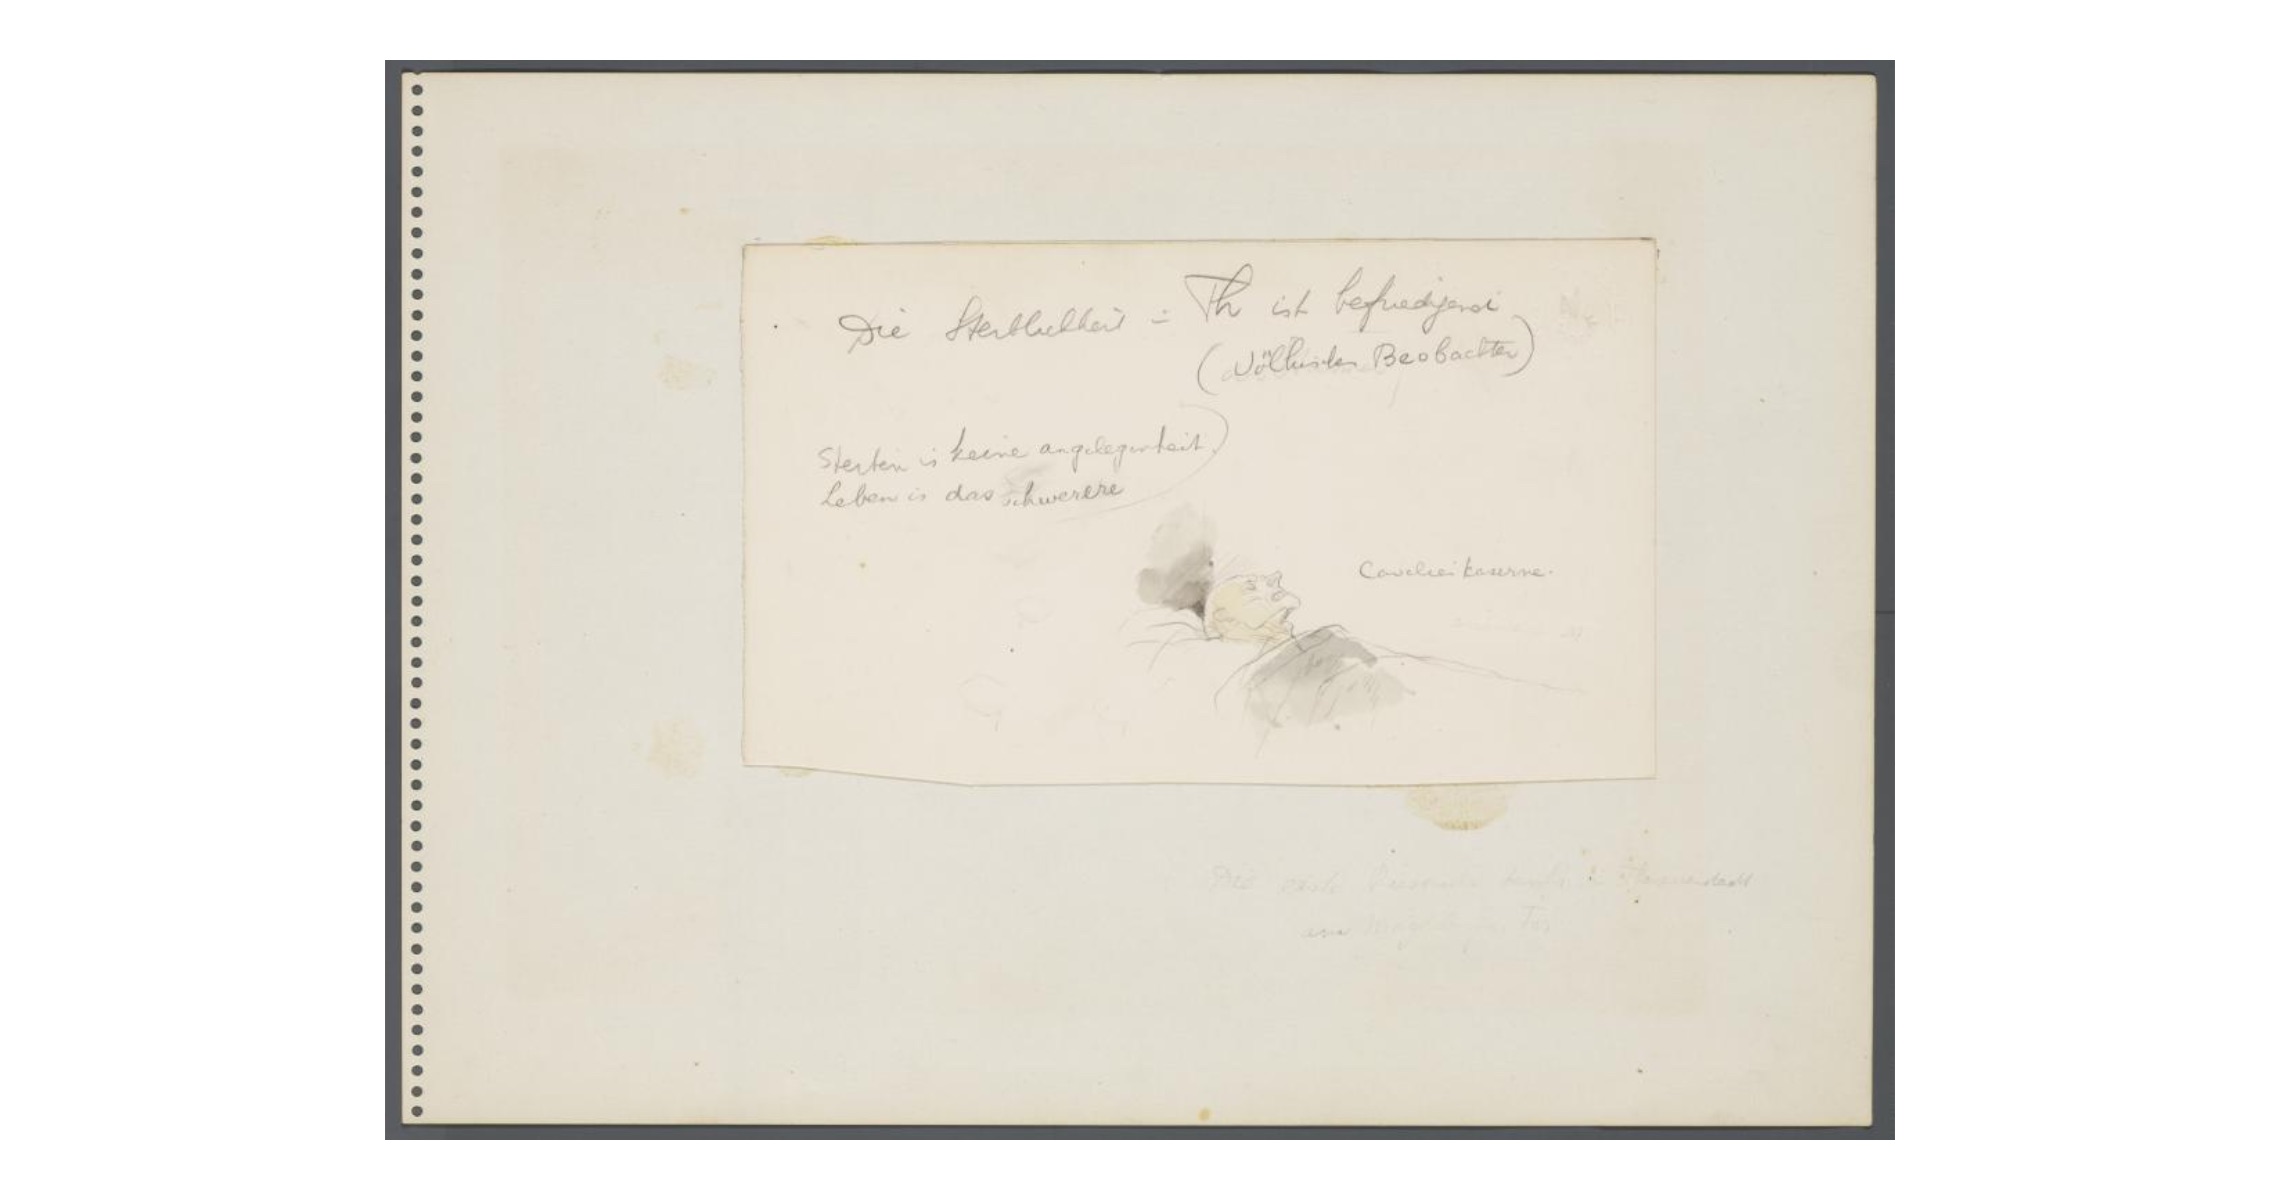 Die Sterblichkeit in Th ist befriedigend
(Völkischer Beobachter)
Sterben is keine angelegenheit.
Leben is das schwerere
Cavalierkaserne.
Die